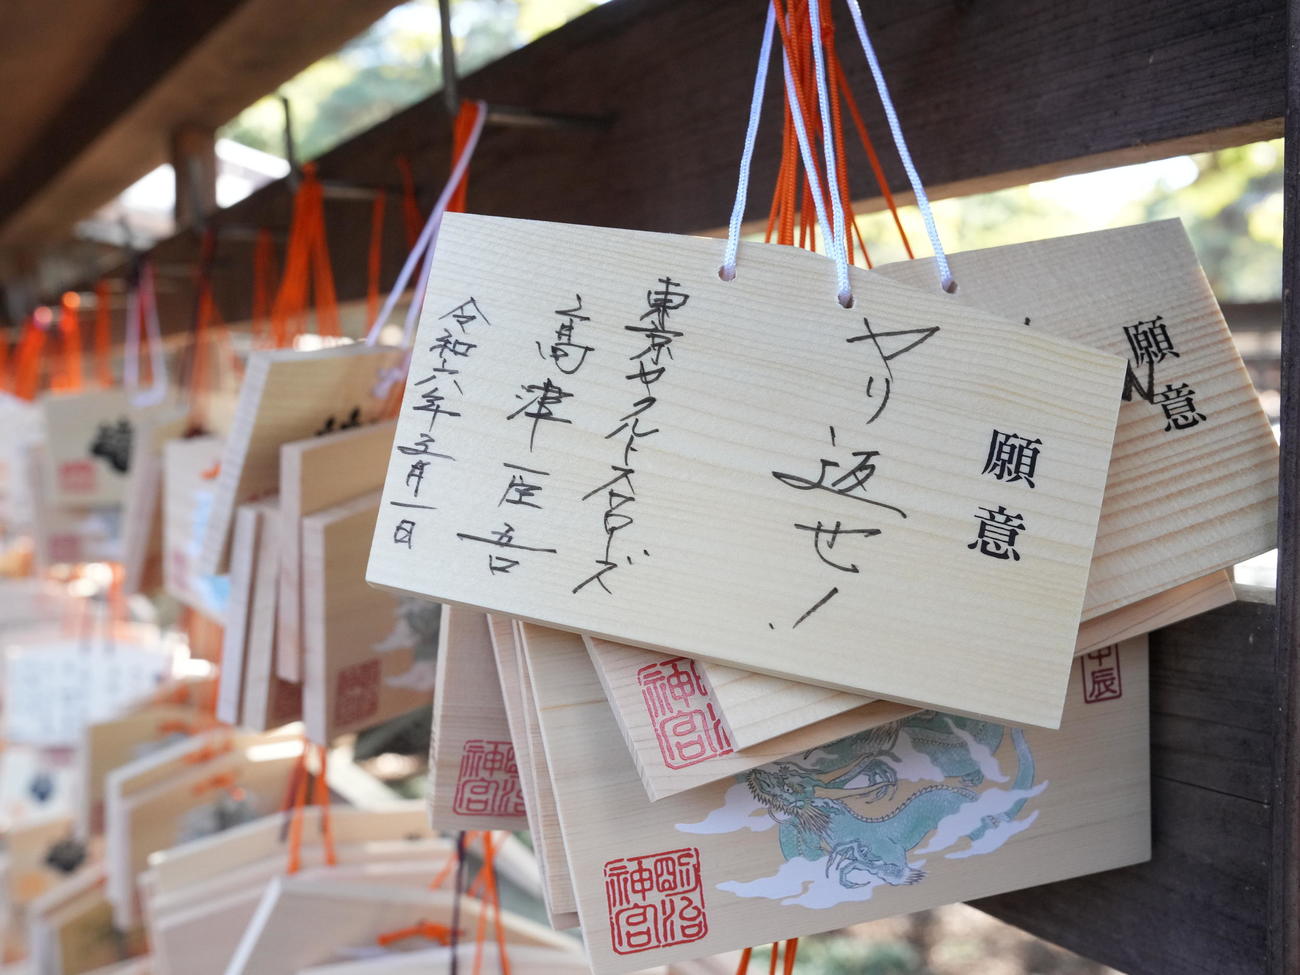 願意
ヤり返せ!
東京ヤクルトスワローズ
高津臣吾
令和六年五月一日
願意
神宮
神宮
明治神宮
甲辰